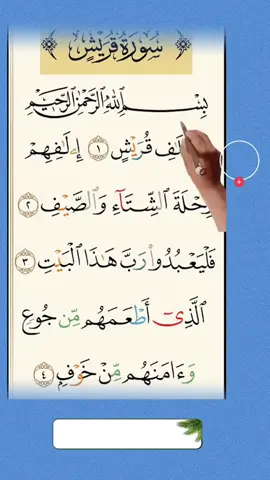 سُورَةُ قُرَيْشٍ
بِسْمِ ٱللَّهِ ٱلرَّحْمَٰنِ ٱلرَّحِيمِ
لَٰفِ قُرَيْشٍ ١ إِۦلَٰفِهِمْ
رِحْلَةَ ٱلشِّتَآءِ وَٱلصَّيْفِ ٢
فَلْيَعْبُدُوا۟ رَبَّ هَٰذَا ٱلْبَيْتِ ٣
ٱلَّذِىٓ أَطْعَمَهُم مِّن جُوعٍ
وَءَامَنَهُم مِّنْ خَوْفٍۭ ٤